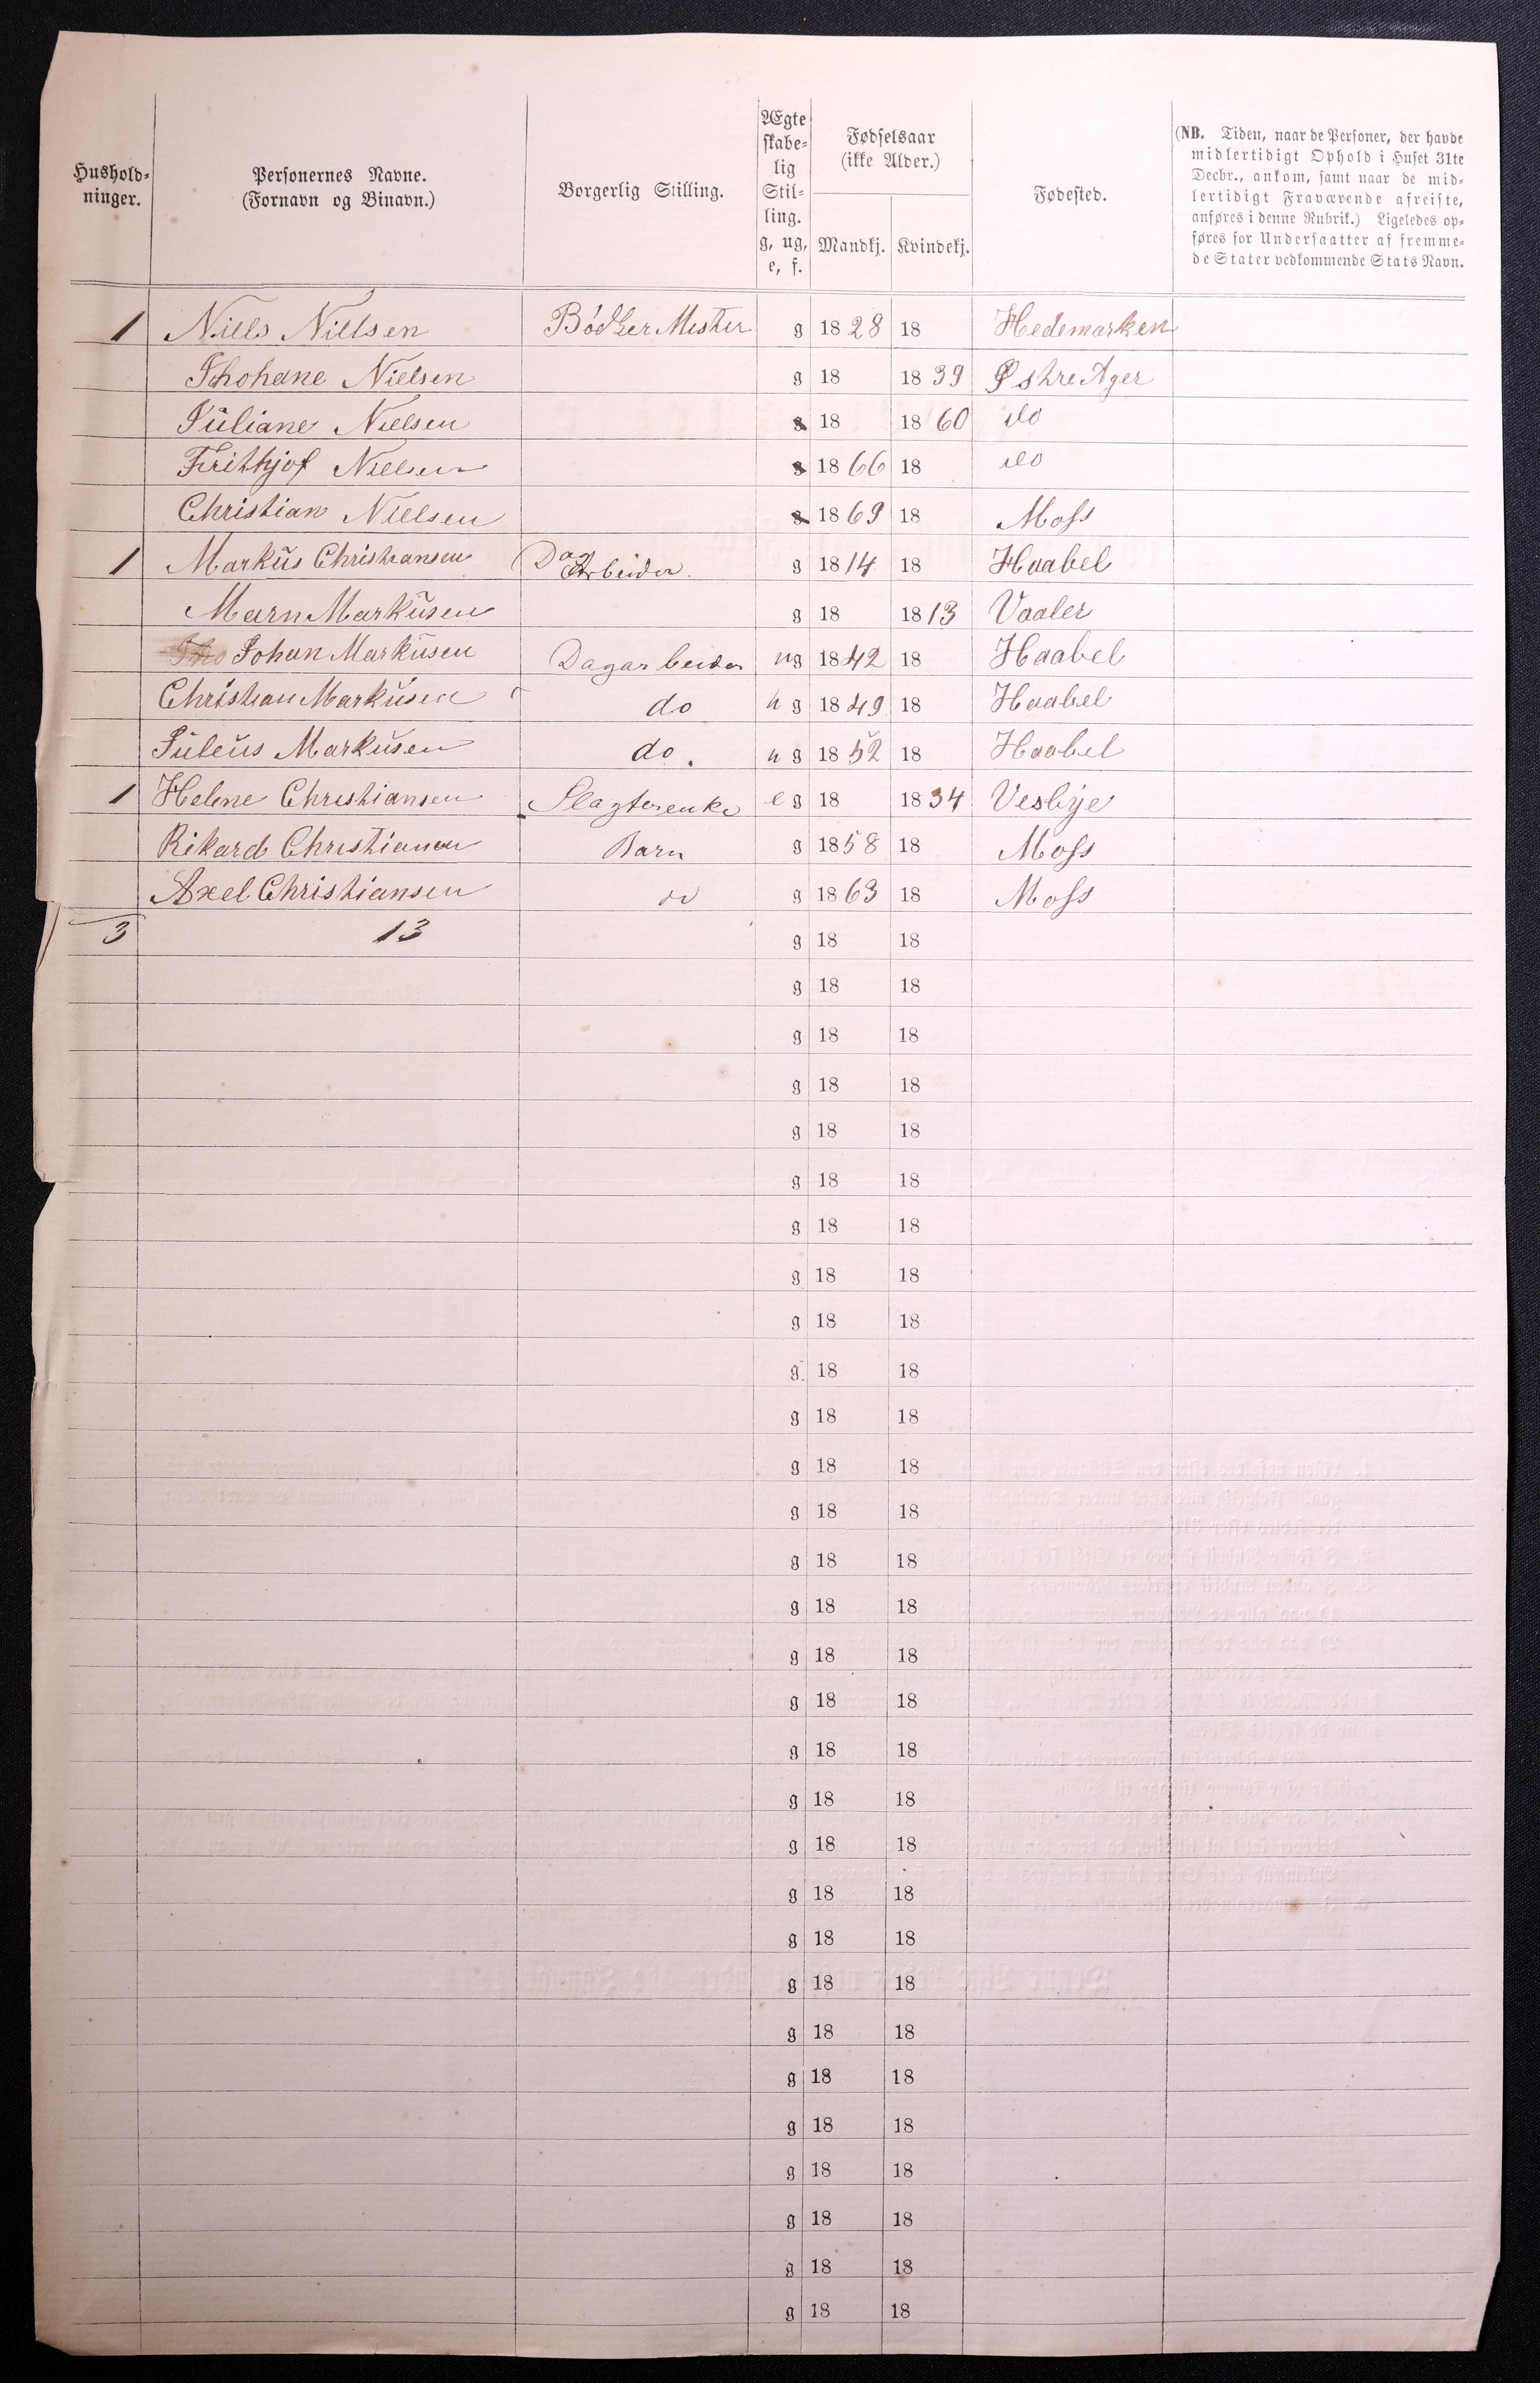 Hushold-
ninger.
Personernes Navne.
(Fornavn og Binavn.)
Borgerlig Stilling.
Ægte
skabe-
lig
Stil-
ling.
g, ug,
e, f.
Fødselsaar
(ikke Alder.)
Mandkj. Kvindekj.
Fødested.
(NB. Tiden, naar de Personer, der havde
midlertidigt Ophold i Huset 31te
Decbr., ankom, samt naar de mid-
lertidigt Fraværende afreiste,
anføres i denne Rubrik.) Ligeledes op-
føres for Undersaatter af fremme-
de Stater vedkommende Stats Navn.
1 Niels Nielsen Bødker Mester g 1828 18 Hedemarken
Thohane Nielsen g 18 1839 Østre Ager
Juliane Nielsen g 18 1860 do
Frithjof Nielsen g 1866 18 do
Christian Nielsen g 1869 18 Moss
1 Markus Christiansen Dag Arbeider g 1814 18 Haabel
Marn Markusen g 18 1813 Vaaler
Johan Markusen Dagarbeider ug 1842 18 Haabel
Christian Markusen do ug 1849 18 Haabel
Juleus Markusen do. ug 1852 18 Haabel
1 Helene Christiansen Slagterenke e g 18 1834 Vesbye
Rikard Christiansen Barn g 1858 18 Moss
Axel Christiansen do g 1863 18 Moss
3 13 g 18 18
g 18 18
g 18 18
g 18 18
g 18 18
g 18 18
g 18 18
g 18 18
g 18 18
g 18 18
g 18 18
g 18 18
g 18 18
g 18 18
g 18 18
g 18 18
g 18 18
g 18 18
g 18 18
g 18 18
g 18 18
g 18 18
g 18 18
g 18 18
g 18 18
g 18 18
g 18 18
g 18 18
g 18 18
g 18 18